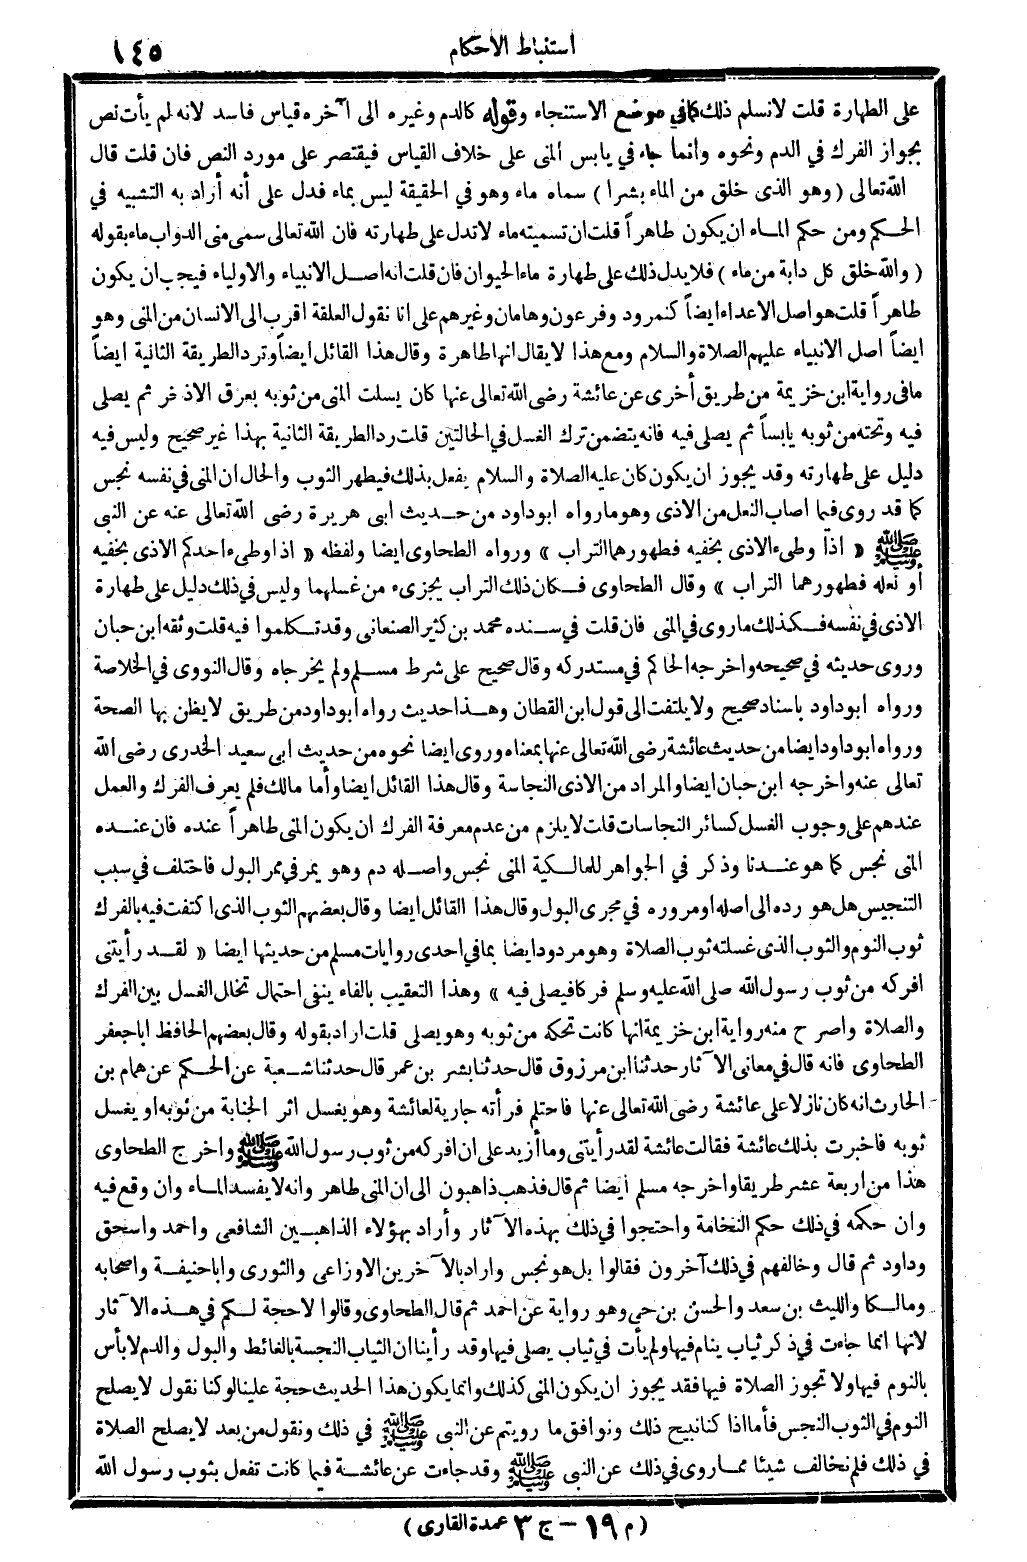 استنباط الاحكام
١٤٥
على الطهارة قلت لانسلم ذلك كما في موضع الاستنجاء وقوله كالدم وغيره الى آخره قياس فاسد لانه لم يأت نص
بجواز الفرك في الدم ونحوه وانما جاء في يابس المنى على خلاف القياس فيقتصر على مورد النص فان قلت قال
الله تعالى (وهو الذى خلق من الماء بشرا) سماه ماء وهو في الحقيقة ليس بماء فدل على أنه أراد به التشبيه في
الحكم ومن حكم الماء ان يكون طاهراً قلت ان تسميته ماء لاتدل على طهارته فان الله تعالى سمى منى الدواب ماء بقوله
(والله خلق كل دابة من ماء) فلا يدل ذلك على طهارة ماء الحيوان فان قلت انه اصل الانبياء والاولياء فيجب ان يكون
طاهراً قلت هو اصل الاعداء ايضاً كنمرود وفرعون وهامان وغيرهم على انا نقول العلقة اقرب الى الانسان من المنى وهو
ايضاً اصل الانبياء عليهم الصلاة والسلام ومع هذا لا يقال انها طاهرة وقال هذا القائل ايضاً وترد الطريقة الثانية ايضاً
مافى رواية ابن خزيمة من طريق أخرى عن عائشة رضى الله تعالى عنها كان يسلت المنى من ثوبه بعرق الاذخر ثم يصلى
فيه وتحته من ثوبه يابساً ثم يصلى فيه فانه يتضمن ترك الغسل في الحالتين قلت رد الطريقة الثانية بهذا غير صحيح وليس فيه
دليل على طهارته وقد يجوز ان يكون كان عليه الصلاة والسلام يفعل بذلك فيطهر الثوب والحال ان المنى في نفسه نجس
كما قد روى فيما اصاب النعل من الاذى وهو مارواه ابو داود من حديث ابى هريرة رضى الله تعالى عنه عن النبى
ﷺ « اذا وطىء الاذى بخفيه فطهورهما التراب » ورواه الطحاوى ايضا ولفظه « اذا وطىء احدكم الاذى بخفيه
أو نعله فطهورهما التراب » وقال الطحاوى فكان ذلك التراب يجزىء من غسلهما وليس في ذلك دليل على طهارة
الاذى في نفسه فكذلك ماروى في المنى فان قلت في سنده محمد بن كثير الصنعانى وقد تكلموا فيه قلت وثقه ابن حبان
وروى حديثه في صحيحه واخرجه الحاكم في مستدركه وقال صحيح على شرط مسلم ولم يخرجاه وقال النووى في الخلاصة
ورواه ابو داود باسناد صحيح ولا يلتفت الى قول ابن القطان وهذا حديث رواه ابو داود من طريق لا يظن بها الصحة
ورواه ابو داود ايضا من حديث عائشة رضى الله تعالى عنها بمعناه وروى ايضا نحوه من حديث ابى سعيد الخدرى رضى الله
تعالى عنه واخرجه ابن حبان ايضا والمراد من الاذى النجاسة وقال هذا القائل ايضا وأما مالك فلم يعرف الفرك والعمل
عندهم على وجوب الغسل كسائر النجاسات قلت لا يلزم من عدم معرفة الفرك ان يكون المنى طاهراً عنده فان عنده
المنى نجس كما هو عندنا وذكر في الجواهر للمالكية المنى نجس واصله دم وهو يمر في ممر البول فاختلف في سبب
التنجيس هل هو رده الى اصله او مروره في مجرى البول وقال هذا القائل ايضا وقال بعضهم الثوب الذى اكتفت فيه بالفرك
ثوب النوم والثوب الذى غسلته ثوب الصلاة وهو مردود ايضا بما في احدى روايات مسلم من حديثها ايضا « لقد رأيتنى
افركه من ثوب رسول الله صلى الله عليه وسلم فركا فيصلى فيه » وهذا التعقيب بالفاء ينفى احتمال تخلل الغسل بين الفرك
والصلاة واصرح منه رواية ابن خزيمة انها كانت تحكه من ثوبه وهو يصلى قلت اراد بقوله وقال بعضهم الحافظ ابا جعفر
الطحاوى فانه قال في معانى الآثار حدثنا ابن مرزوق قال حدثنا بشر بن عمر قال حدثنا شعبة عن الحكم عن همام بن
الحارث انه كان نازلا على عائشة رضى الله تعالى عنها فاحتلم فرأته جارية لعائشة وهو يغسل اثر الجنابة من ثوبه او يغسل
ثوبه فاخبرت بذلك عائشة فقالت عائشة لقد رأيتنى وما أزيد على ان افركه من ثوب رسول الله ﷺ واخرج الطحاوى
هذا من اربعة عشر طريقا واخرجه مسلم ايضا ثم قال فذهب ذاهبون الى ان المنى طاهر وانه لا يفسد الماء وان وقع فيه
وان حكمه في ذلك حكم النخامة واحتجوا في ذلك بهذه الآثار وأراد بهؤلاء الذاهبين الشافعى واحمد واسحق
وداود ثم قال وخالفهم في ذلك آخرون فقالوا بل هو نجس واراد بالآخرين الاوزاعى والثورى وابا حنيفة واصحابه
ومالكا والليث بن سعد والحسن بن حى وهو رواية عن احمد ثم قال الطحاوى وقالوا لاحجة لكم في هذه الآثار
لانها انما جاءت في ذكر ثياب ينام فيها ولم يأت في ثياب يصلى فيها وقد رأينا ان الثياب النجسة بالغائط والبول والدم لا بأس
بالنوم فيها ولا تجوز الصلاة فيها فقد يجوز ان يكون المنى كذلك وانما يكون هذا الحديث حجة علينا لو كنا نقول لا يصلح
النوم في الثوب النجس فأما اذا كنا نبيح ذلك ونوافق ما رويتم عن النبى ﷺ في ذلك ونقول من بعد لا يصلح الصلاة
في ذلك فلم نخالف شيئا مما روى في ذلك عن النبى ﷺ وقد جاءت عن عائشة فيما كانت تفعل بثوب رسول الله
(م ١٩ - ج ٣ عمدة القارى)